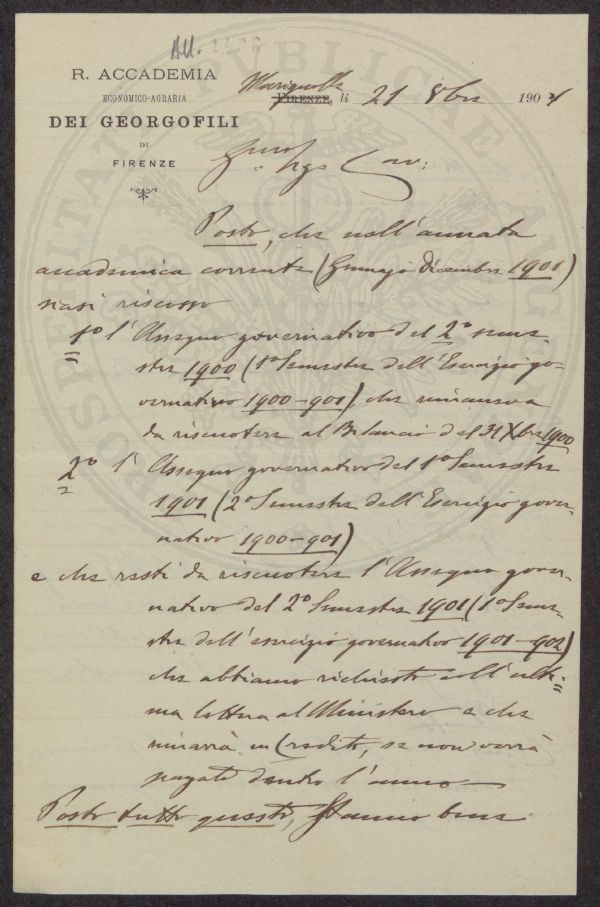 All. 1428
R. ACCADEMIA
ECONOMICO-AGRARIA
DEI GEORGOFILI
DI
FIRENZE
Marignolle
FIRENZE, li 21 8bre 1901
PROSPERITATI PUBLICAE AUGENDAE
Cav:
Posto, che nell'annata
accademica corrente (Gennajo Dicembre 1901)
siasi riscosso
1º l'Assegno governativo del 2º seme-
stre 1900 (1º Semestre dell'Esercizio go-
vernativo 1900-901) che rimaneva
da riscuotere al Bilancio del 31 Xbre 1900
2º l'Assegno governativo del 1º Semestre
1901 (2º Semestre dell'Esercizio gover-
nativo 1900-901)
e che resti da riscuotere l'Assegno gover-
nativo del 2º Semestre 1901 (1º Seme-
stre dell'esercizio governativo 1901-902)
che abbiamo richiesto coll'ulti-
ma lettera al Ministero e che
rimarrà in Credito, se non verrà
pagato dentro l'anno—
Posto tutto questo, stanno bene